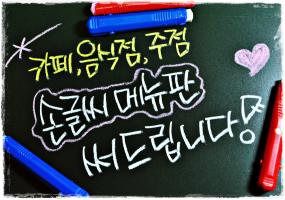 카페, 음식점, 주점
손글씨 메뉴판
써드립니다!